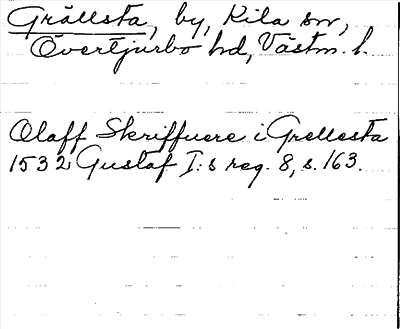 Grällsta, by, Kila sn,
Övertjurbo hd, Västm. l.
Olaff Skriffuere i Grellesta
1532 Gustaf I:s reg. 8, s. 163.